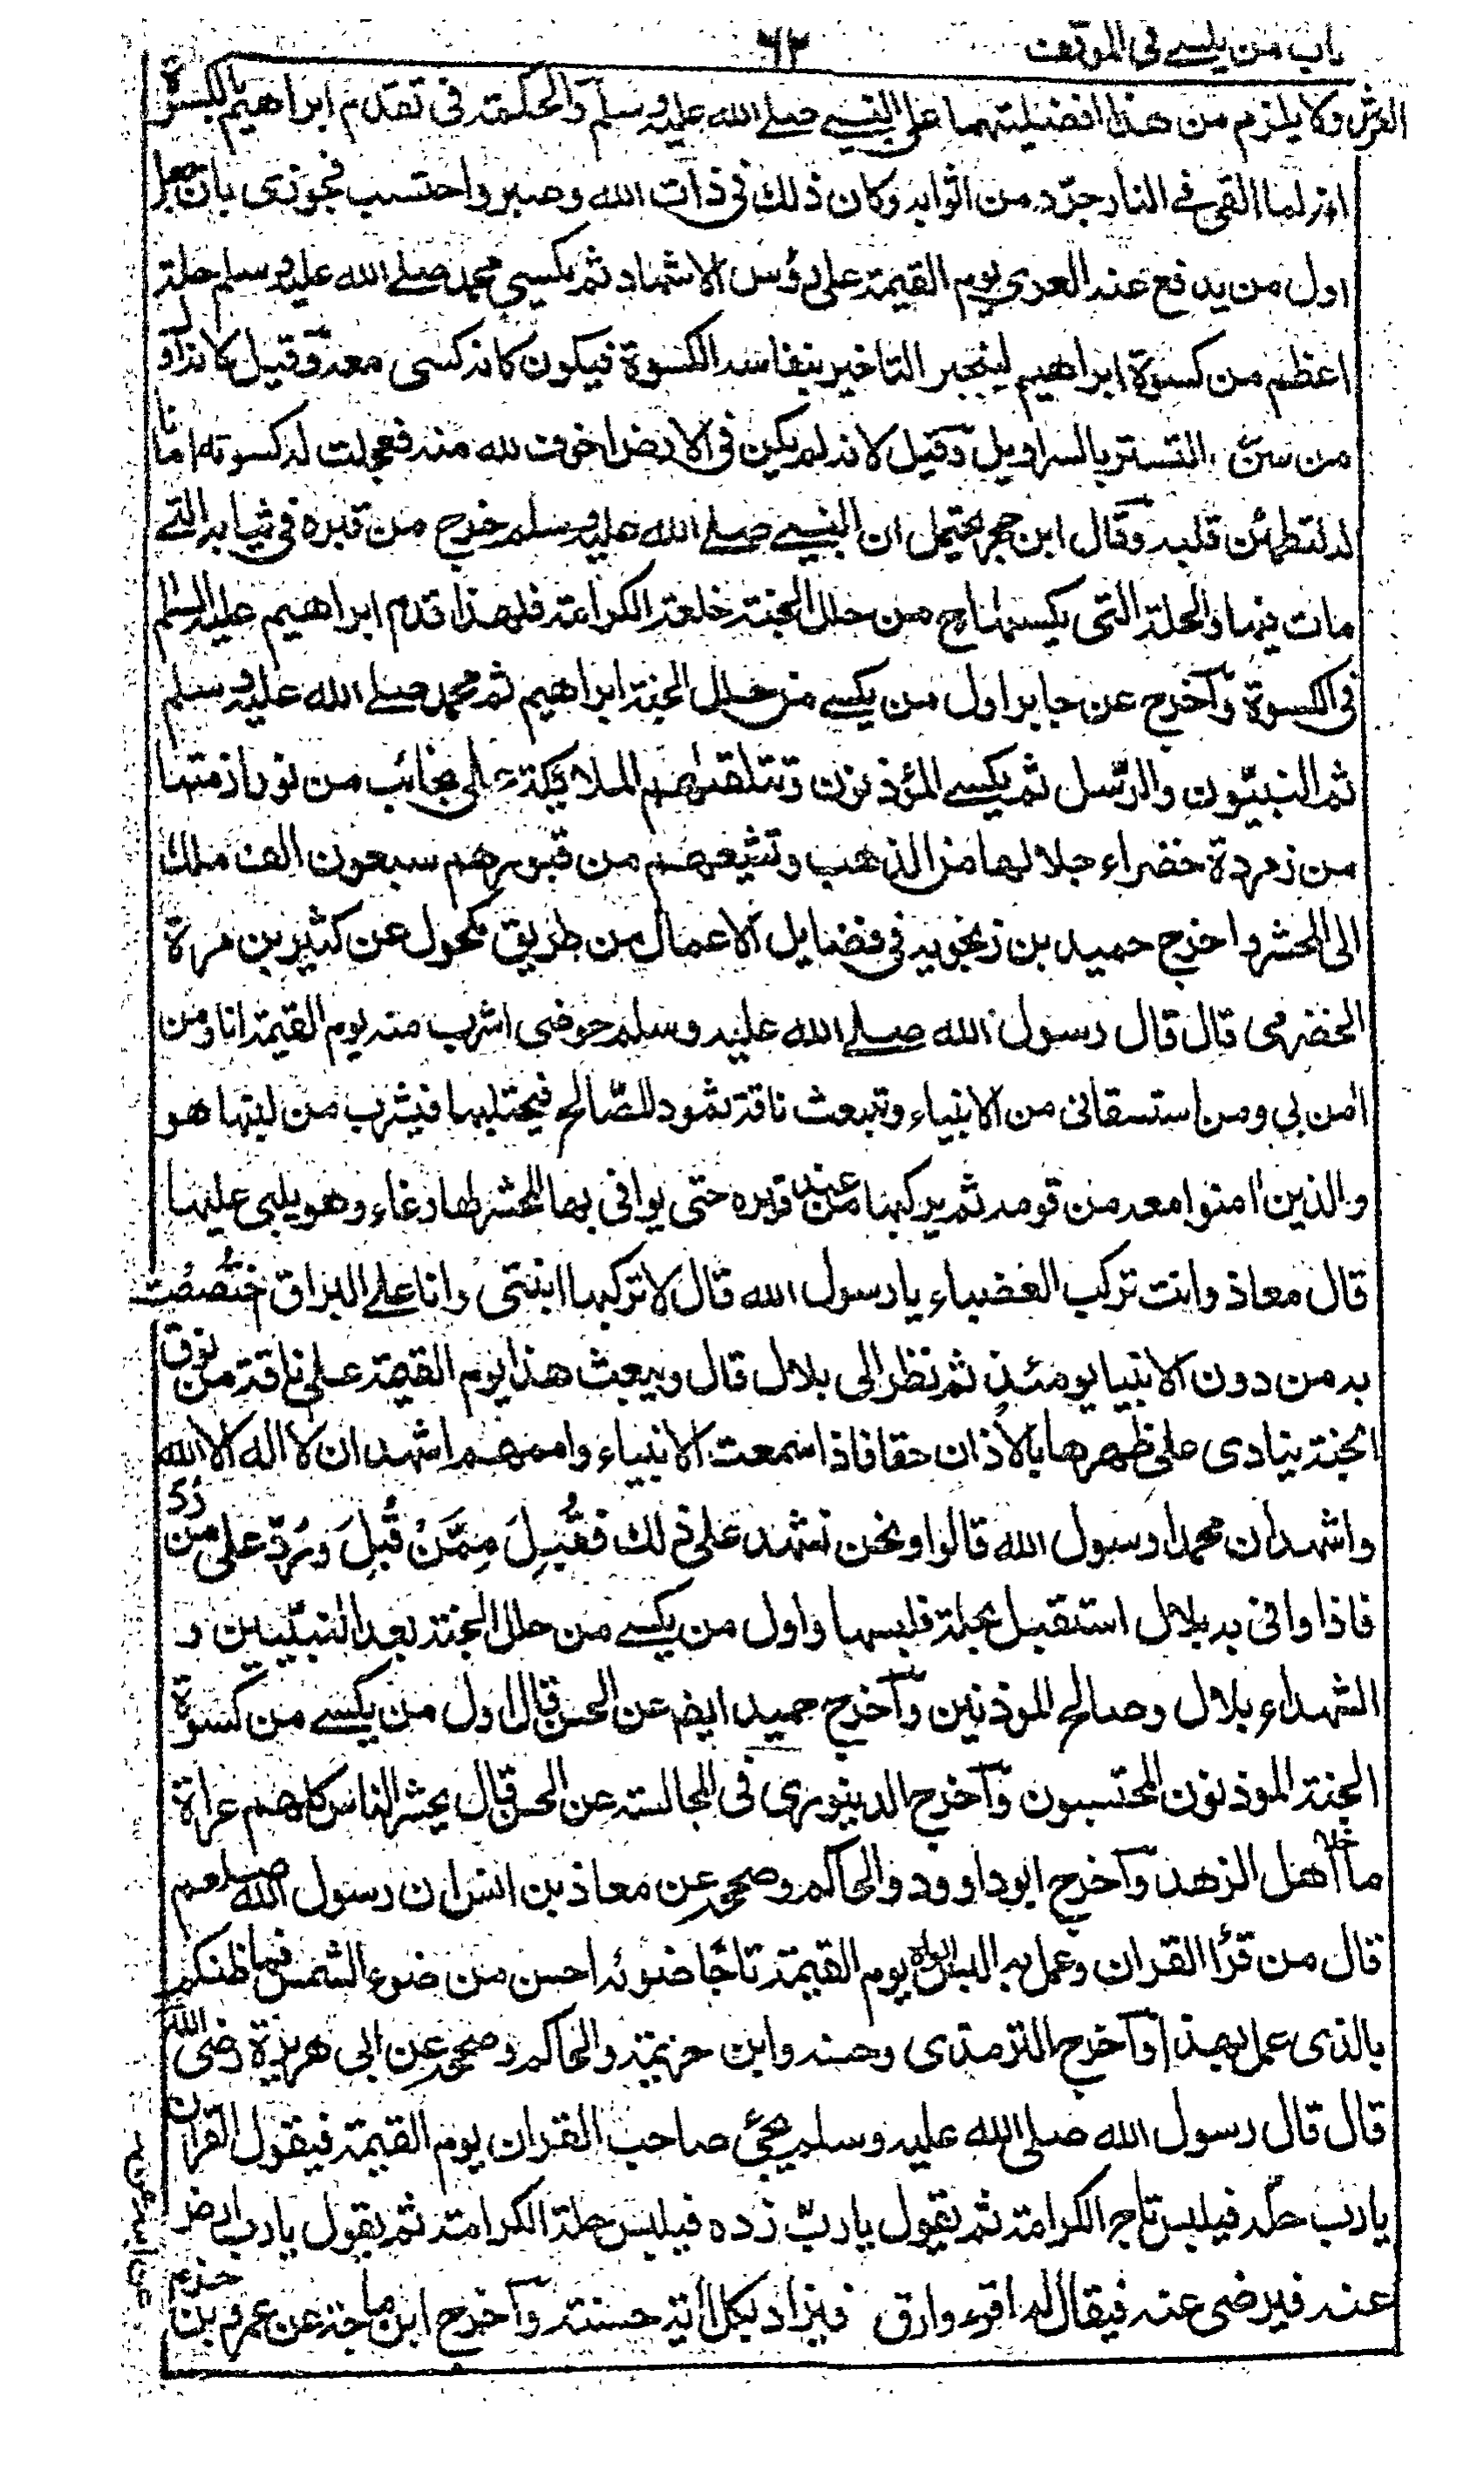 باب من يكسى فى الموقف ٦٢
العرش ولا يلزم من هذا افضليتهما على النبي صلے الله عليه وسلم والحكمة فى تقدم ابراهيم بالكسوة
انه لما القى فے النار جرّد من اثوابه وكان ذلك فى ذات الله وصبر واحتسب فجوزى بان جعل
اول من يدفع عنه العرى يوم القيمة على رؤس الاشهاد ثم يكسى محمد صلے الله عليه وسلم حلة
اعظم من كسوة ابراهيم لينجبر التاخير بنفاسة الكسوة فيكون كانه كسى معه وقيل لانه اول
من سنّ التستر بالسراويل وقيل لانه لم يكن فى الارض اخوف لله منه فعجلت له كسوته امانا
له لتطمئن قلبه وقال ابن حجر يحتمل ان النبي صلے الله عليه وسلم خرج من قبره فى ثيابه التے
مات فيها والحلة التى يكسها ح من حلل الجنة خلعة الكرامة فلهذا قدم ابراهيم عليه السلم
فى الكسوة وآخرج عن جابر اول من يكسے من حلل الجنة ابراهيم ثم محمد صلے الله عليه وسلم
ثم النبيّون والرّسل ثم يكسے المؤذنون وتتلقٰهم الملائكة على نجائب من نور ازمتها
من زمردة خضراء جلالها من الذهب وتشيعهم من قبورهم سبعون الف ملك
الى المحشر واخرج حميد بن زنجويه فى فضايل الاعمال من طريق مكحول عن كثير بن مرة
الحضرمى قال قال رسول الله صلے الله عليه وسلم حوضى اشرب منه يوم القيمة انا ومن
امن بي ومن استسقانى من الانبياء وتبعث ناقة ثمود للصّالح فيحتلبها فيشرب من لبنها هو
والذين امنوا معه من قومه ثم يركبها من عند قبره حتى يوافى بها المحشر لها رغاء وهو يلبى عليها
قال معاذ وانت تركب العضباء يا رسول الله قال لا تركبها ابنتى وانا على البراق اختصصت
به من دون الانبيا يومئذ ثم نظر الى بلال قال ويبعث هذا يوم القيمة على ناقة من نوق
الجنة ينادى على ظهرها بالاذان حقا فاذا سمعت الانبياء واممهم اشهد ان لا اله الا الله
واشهد ان محمدا رسول الله قالوا ونحن نشهد على ذلك فقُبِلَ مِمَّنْ قُبِلَ ورُدّ على من رُدّ
فاذا وافى به بلال استقبل بحلة فلبسها واول من يكسے من حلل الجنة بعد النبيّين و
الشهداء بلال وصالح الموذنين وآخرج حميد ايضم عن الحسن قال اول من يكسے من كسوة
الجنة الموذنون المحتسبون وآخرج الدينورى فى المجالسته عن الحسن قال يحشر الناس كلهم عراة
ما خلا اهل الزهد وآخرج ابو داوود والحاكم وصححه عن معاذ بن انس ان رسول الله صلعم
قال من قرأ القران وعمل به البس والداه يوم القيمة تاجًا ضوئه احسن من ضوء الشمس فما ظنكم
بالذى عمل بهذا وآخرج الترمذى وحسنه وابن خزيمة والحاكم وصححه عن ابى هريرة رضى الله
قال قال رسول الله صلى الله عليه وسلم يجئ صاحب القران يوم القيمة فيقول القران
يا رب حلّه فيلبس تاج الكرامة ثم يقول يا ربّ زده فيلبس حلة الكرامة ثم يقول يا رب ارض
عنه فيرضى عنه فيقال له اقرء وارق فيزاد بكل اٰية حسنة وآخرج ابن ماجة عن عمرو بن حزم